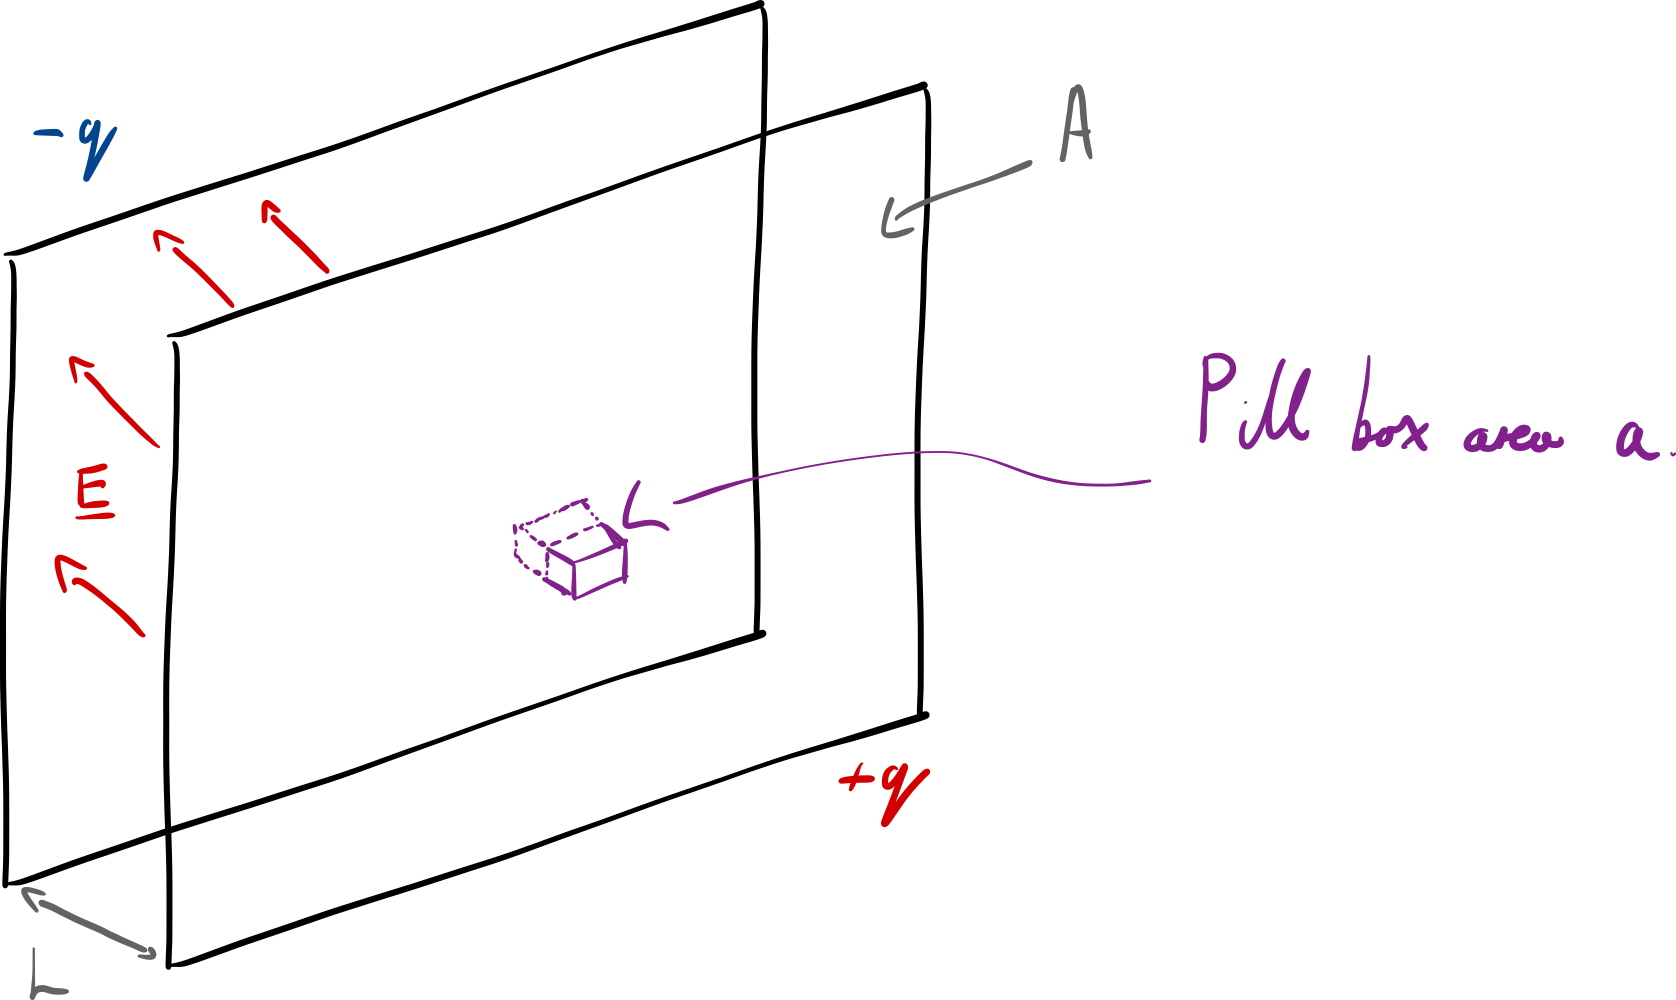 -q
A
Pill box area a.
E
+q
L